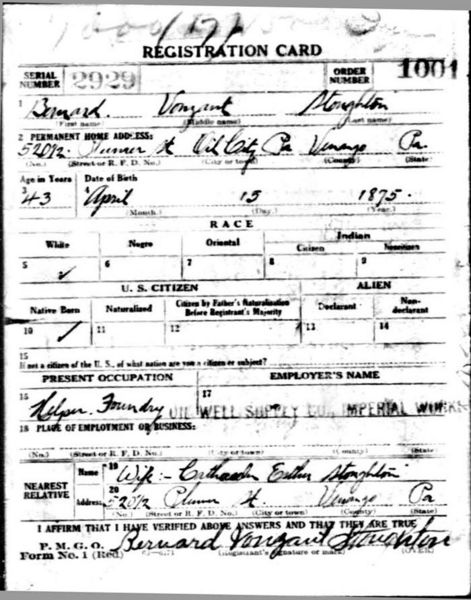 REGISTRATION CARD
SERIAL NUMBER 2929 ORDER NUMBER 1001
1 Bernard Vonzant Stoughton
(First name) (Middle name) (Last name)
2 PERMANENT HOME ADDRESS:
520½ Plumer St Oil City Pa Venango Pa
(No.) (Street or R. F. D. No.) (City or town) (County) (State)
Age in Years Date of Birth
3 43 4 April 15 1875.
(Month.) (Day.) (Year.)
RACE
White Negro Oriental Indian
Citizen Noncitizen
5 ✓ 6 7 8 9
U. S. CITIZEN ALIEN
Native Born Naturalized Citizen by Father's Naturalization Before Registrant's Majority Declarant Non-declarant
10 ✓ 11 12 13 14
15
If not a citizen of the U. S., of what nation are you a citizen or subject?
PRESENT OCCUPATION EMPLOYER'S NAME
16 Helper Foundry 17 OIL WELL SUPPLY CO., IMPERIAL WORKS
18 PLACE OF EMPLOYMENT OR BUSINESS:
(No.) (Street or R. F. D. No.) (City or town) (County) (State)
NEAREST RELATIVE Name 19 Wife:- Esther Stoughton
Address 20 520½ Plumer St. Venango Pa
(No.) (Street or R. F. D. No.) (City or town) (County) (State)
I AFFIRM THAT I HAVE VERIFIED ABOVE ANSWERS AND THAT THEY ARE TRUE
P. M. G. O. Bernard Vonzant Stoughton
Form No. 1 (Red) (Registrant's signature or mark) (OVER)